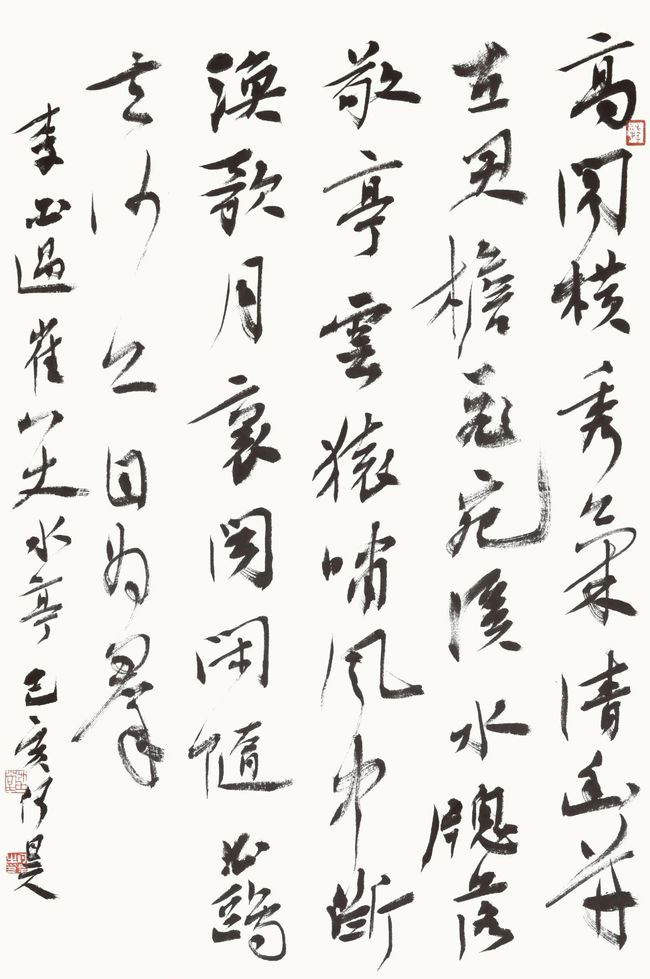 高閣橫秀氣清幽並
在君檐飛宛溪水牕落
敬亭雲猿哨風中斷
漁歌月裏聞閑隨白鷗
去沙上自為羣
李白過崔八丈水亭 己亥何昊